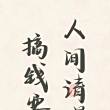 人间请
搞钱要